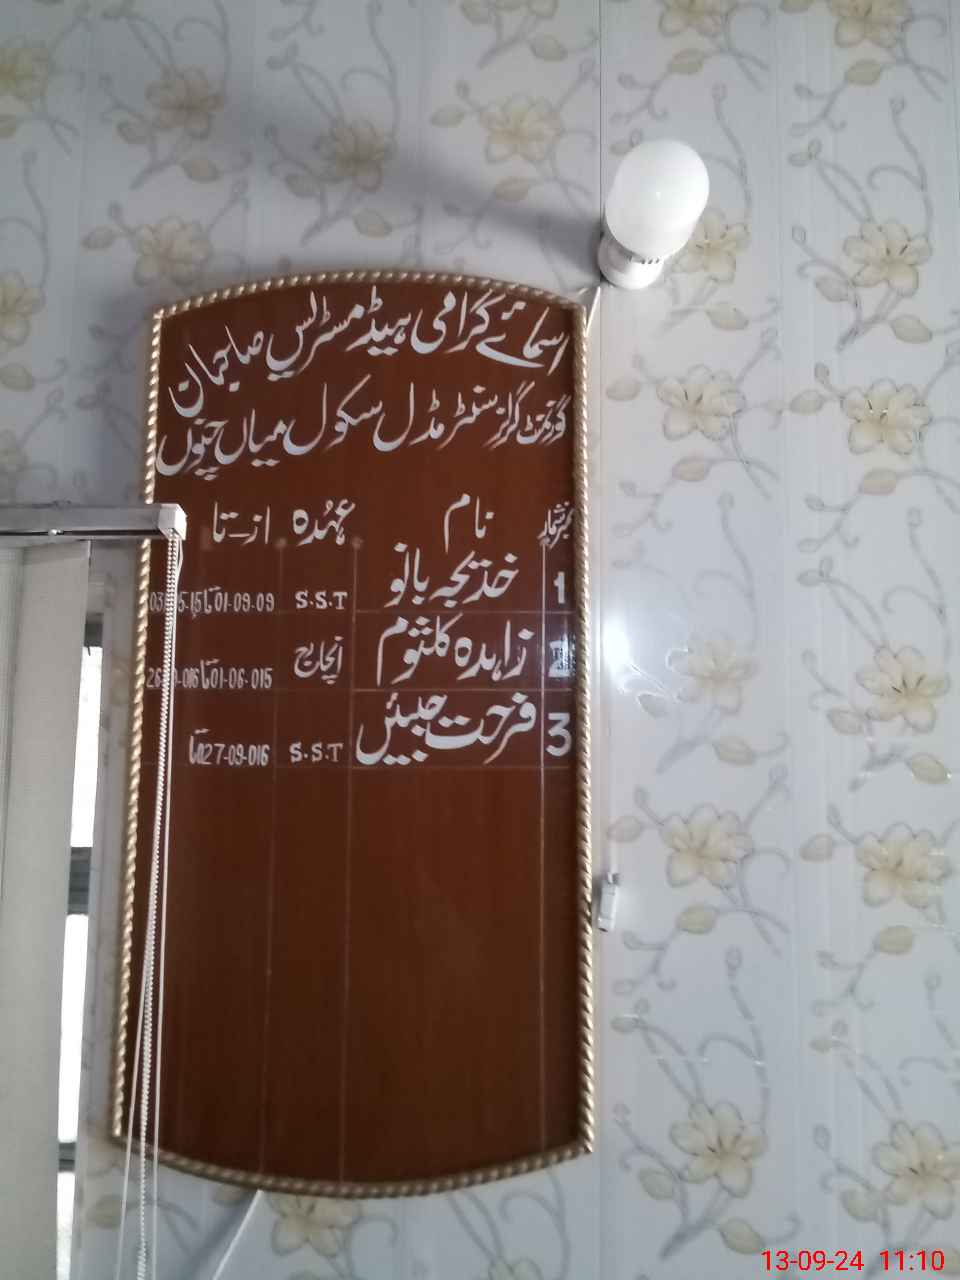 اسمائے گرامی ہیڈ مسٹریس صاحبان
گورنمنٹ گرلز سنٹر مڈل سکول میاں چنوں
نمبر شمار نام عہدہ از-تا
1 خدیجہ بانو S.S.T 01-09-09 تا
2 زاہدہ کلثوم انچارج 01-06-015 تا
3 فرحت جبیں S.S.T 27-09-016 تا
13-09-24 11:10